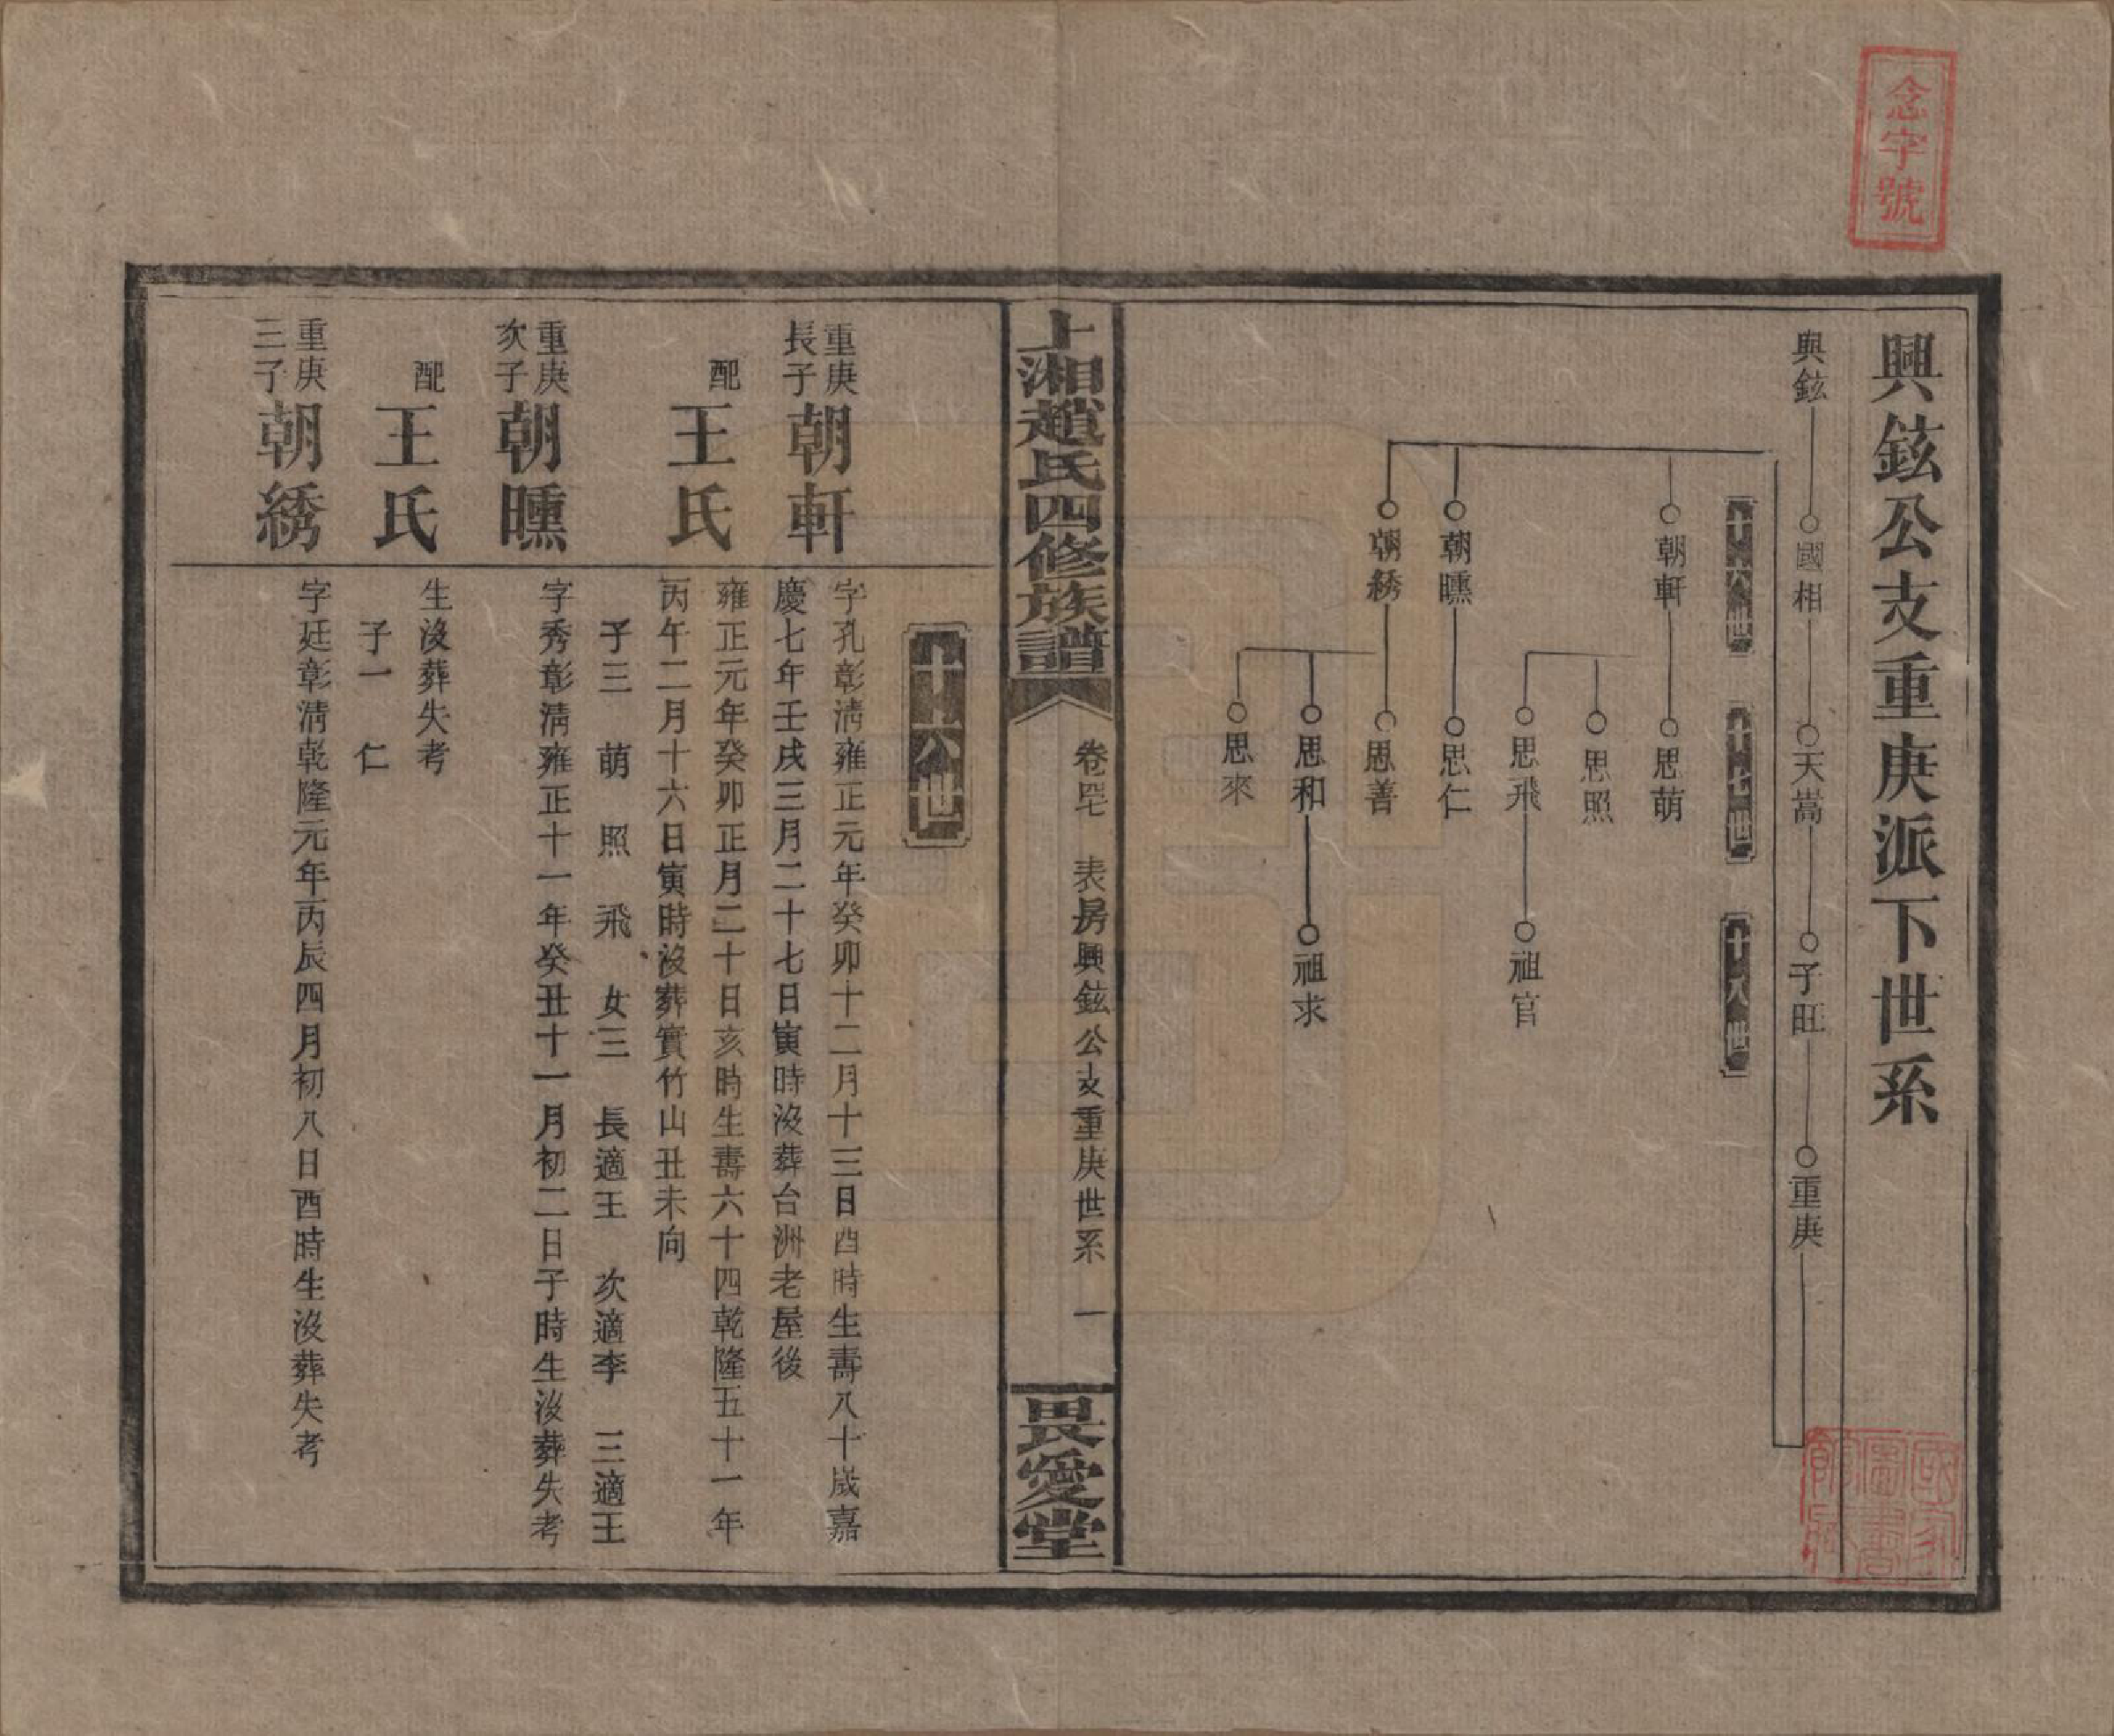 念字號
興鉉公支重庚派下世系
興鉉 國相 天嵩 子旺 重庚
十六世 十七世 十八世
朝軒 思萌
思照
思飛 祖官
朝曛 思仁
朝綉 思善
思和 祖求
思來
國家圖書館藏
上湘趙氏四修族譜
卷 表房興鉉公支重庚世系 一
畏愛堂
十六世
重庚長子 朝軒
字孔彰淸雍正元年癸卯十二月十三日酉時生壽八十歲嘉
慶七年壬戌三月二十七日寅時沒葬台洲老屋後
配 王氏
雍正元年癸卯正月二十日亥時生壽六十四乾隆五十一年
丙午二月十六日寅時沒葬實竹山丑未向
子三 萌 照 飛 女三 長適王 次適李 三適王
重庚次子 朝曛
字秀彰淸雍正十一年癸丑十一月初二日子時生沒葬失考
配 王氏
生沒葬失考
子一 仁
重庚三子 朝綉
字廷彰淸乾隆元年丙辰四月初八日酉時生沒葬失考